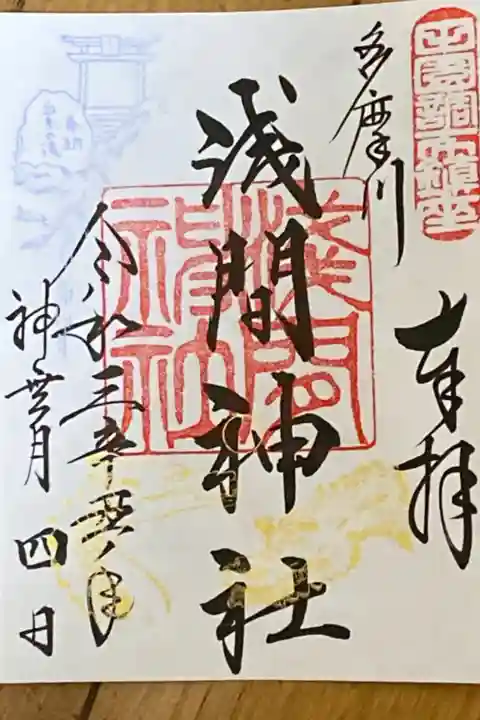 田園調布鎮座
奉拝
多摩川
浅間神社
淺間
神社
令和三辛丑ノ年
神無月 四日